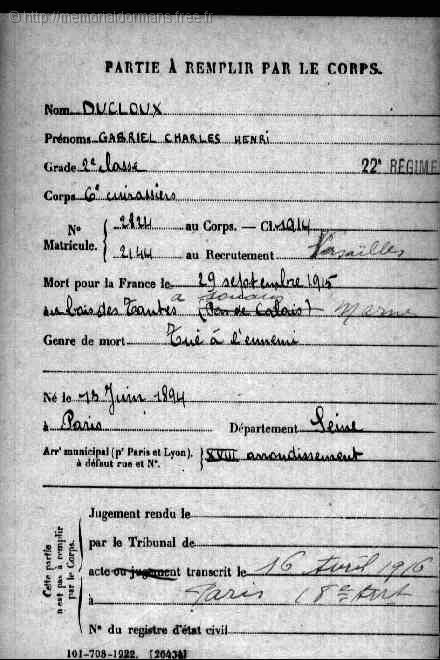 © http://memorialdormans.free.fr
PARTIE À REMPLIR PAR LE CORPS.
Nom DUCLOUX
Prénoms GABRIEL CHARLES HENRI
Grade 2e classe 22e REGIME
Corps 6e cuirassiers
N° Matricule. { 2824 au Corps. — Cl. 1914
2144 au Recrutement Versailles
Mort pour la France le 29 septembre 1915
à Souain
au bois des Tantes (Pas de Calais) Marne
Genre de mort Tué à l'ennemi
Né le 13 Juin 1894
à Paris Département Seine
Arrt municipal (pr Paris et Lyon), à défaut rue et N°. } XVIII arrondissement
Cette partie n'est pas à remplir par le Corps.
Jugement rendu le
par le Tribunal de
acte ou jugement transcrit le 16 Avril 1916
à Paris 18e Arrt
N° du registre d'état civil
101-708-1922. [26434]